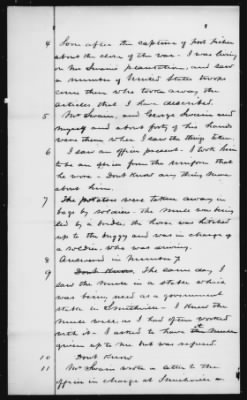 4 Soon after the capture of Fort Fisher
about the close of the war - I was living
on Mr Swans plantation, and saw
a number of United States troops
come there who took away the
articles that I have described.
5 Mr Swann, and George Swann and
myself and about forty of his hands
were there when I saw the things taken.
6 I saw an officer present. I took him
to be an officer from the uniform that
he wore - Dont Know any thing more
about him.
7 The potatoes were taken away in
bags by soldiers - the mule was being
led by a bridle, the horse was hitched
up to the buggy and was in charge of
a soldier, who was driving.
8 Answered in Number 7
9 Dont Know. The same day I
saw the mule in a stable which
was being used as a government
stable in Smithville - I knew the
mule well as I had often worked
with it - I asked to have the mule
given up to me but was refused.
10 Dont Know
11 Mr Swann wrote a letter to the
officer in charge at Smithville